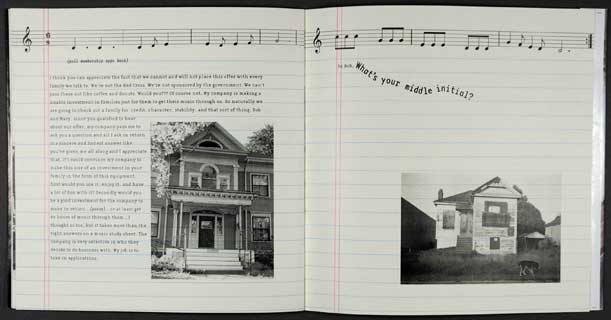 (pull membership apps here)
I think you can appreciate the fact that we cannot and will not place this offer with every
family we talk to. We're not the Red Cross. We're not sponsored by the government. We can't
pass these out like coffee and donuts. Would you??? Of course not. My company is making a
sizable investment in families just for them to get their music through us. So naturally we
are going to check out a family for: credit, character, stability, and that sort of thing. Bob
and Mary, since you qualified to hear
about our offer, my company pays me to
ask you a question and all I ask in return
is a sincere and honest answer like
you've given me all along and I appreciate
that. If I could convince my company to
make this size of an investment in your
family in the form of this equipment,
first would you use it, enjoy it, and have
a lot of fun with it? Secondly would you
be a good investment for the company to
make in return...(pause)...or at least get
to house of music through them...I
thought so too, but it takes more than the
right answers on a music study sheet. The
company is very selective in who they
decide to do business with. My job is to
take in applications.
So Bob, What's your middle initial?